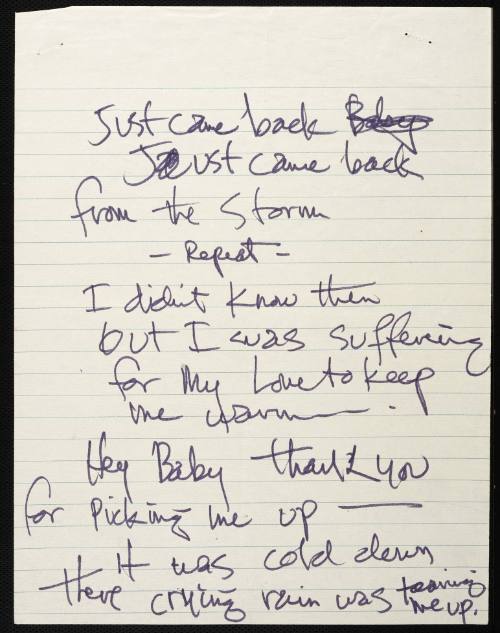 Just came back Baby
Just came back
from the Storm
- Repeat -
I didn't know then
but I was suffering
for my Love to keep
me warm.
Hey Baby thank you
for picking me up
It was cold down
there crying rain was tearing
me up.